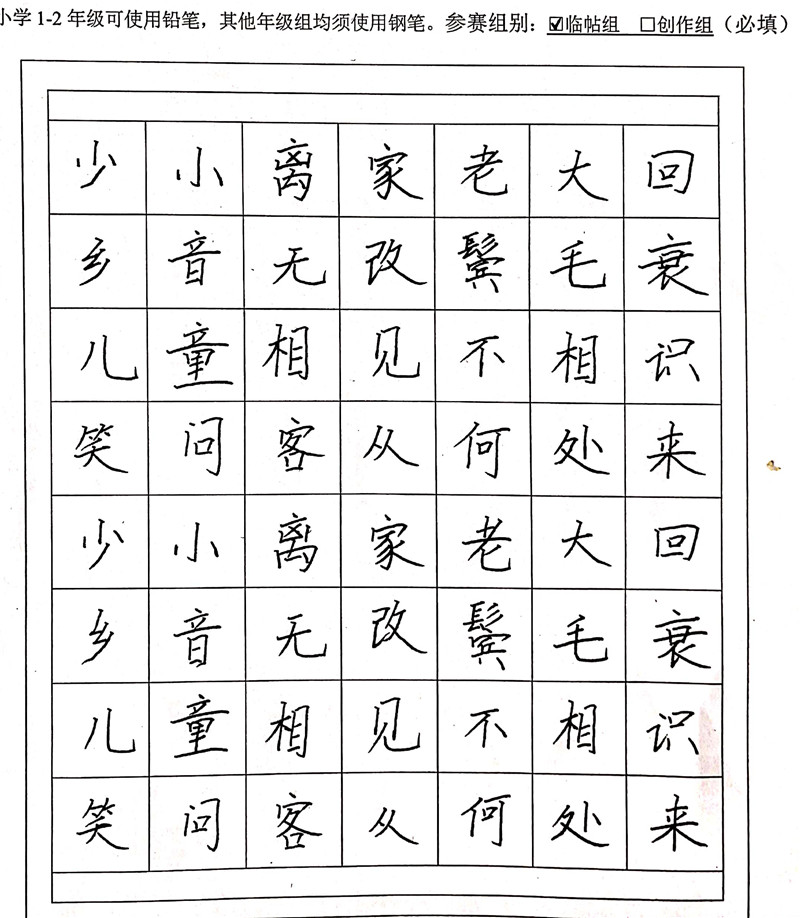 小学1-2年级可使用铅笔，其他年级组均须使用钢笔。参赛组别：☑临帖组 □创作组（必填）
少小离家老大回
乡音无改鬓毛衰
儿童相见不相识
笑问客从何处来
少小离家老大回
乡音无改鬓毛衰
儿童相见不相识
笑问客从何处来